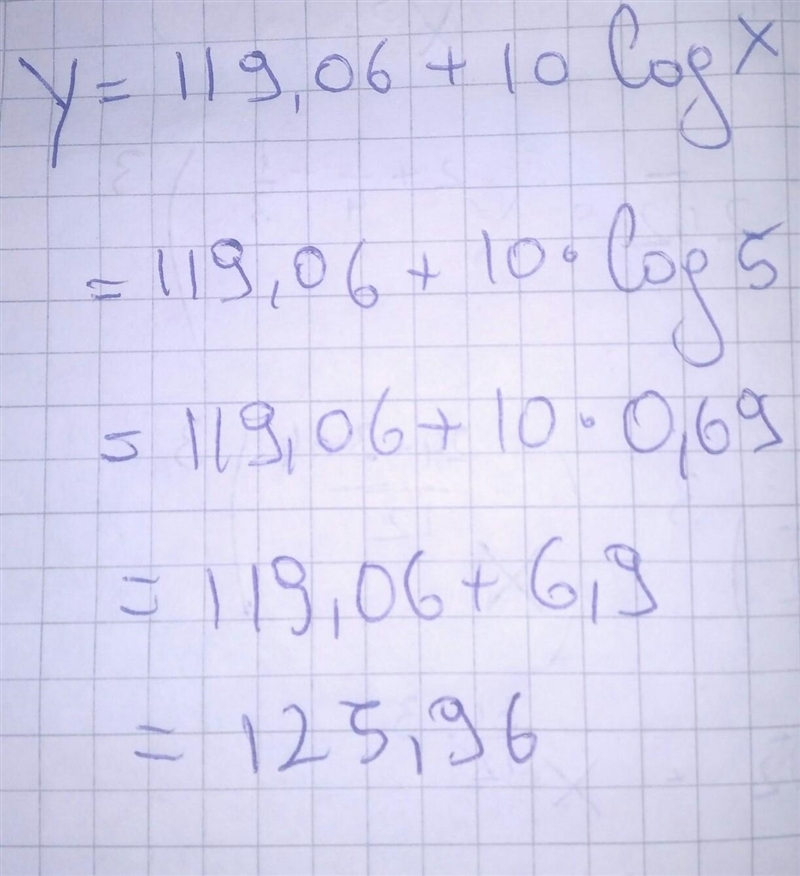 y = 119,06 + 10 log x
= 119,06 + 10 · log 5
= 119,06 + 10 · 0,69
= 119,06 + 6,9
= 125,96